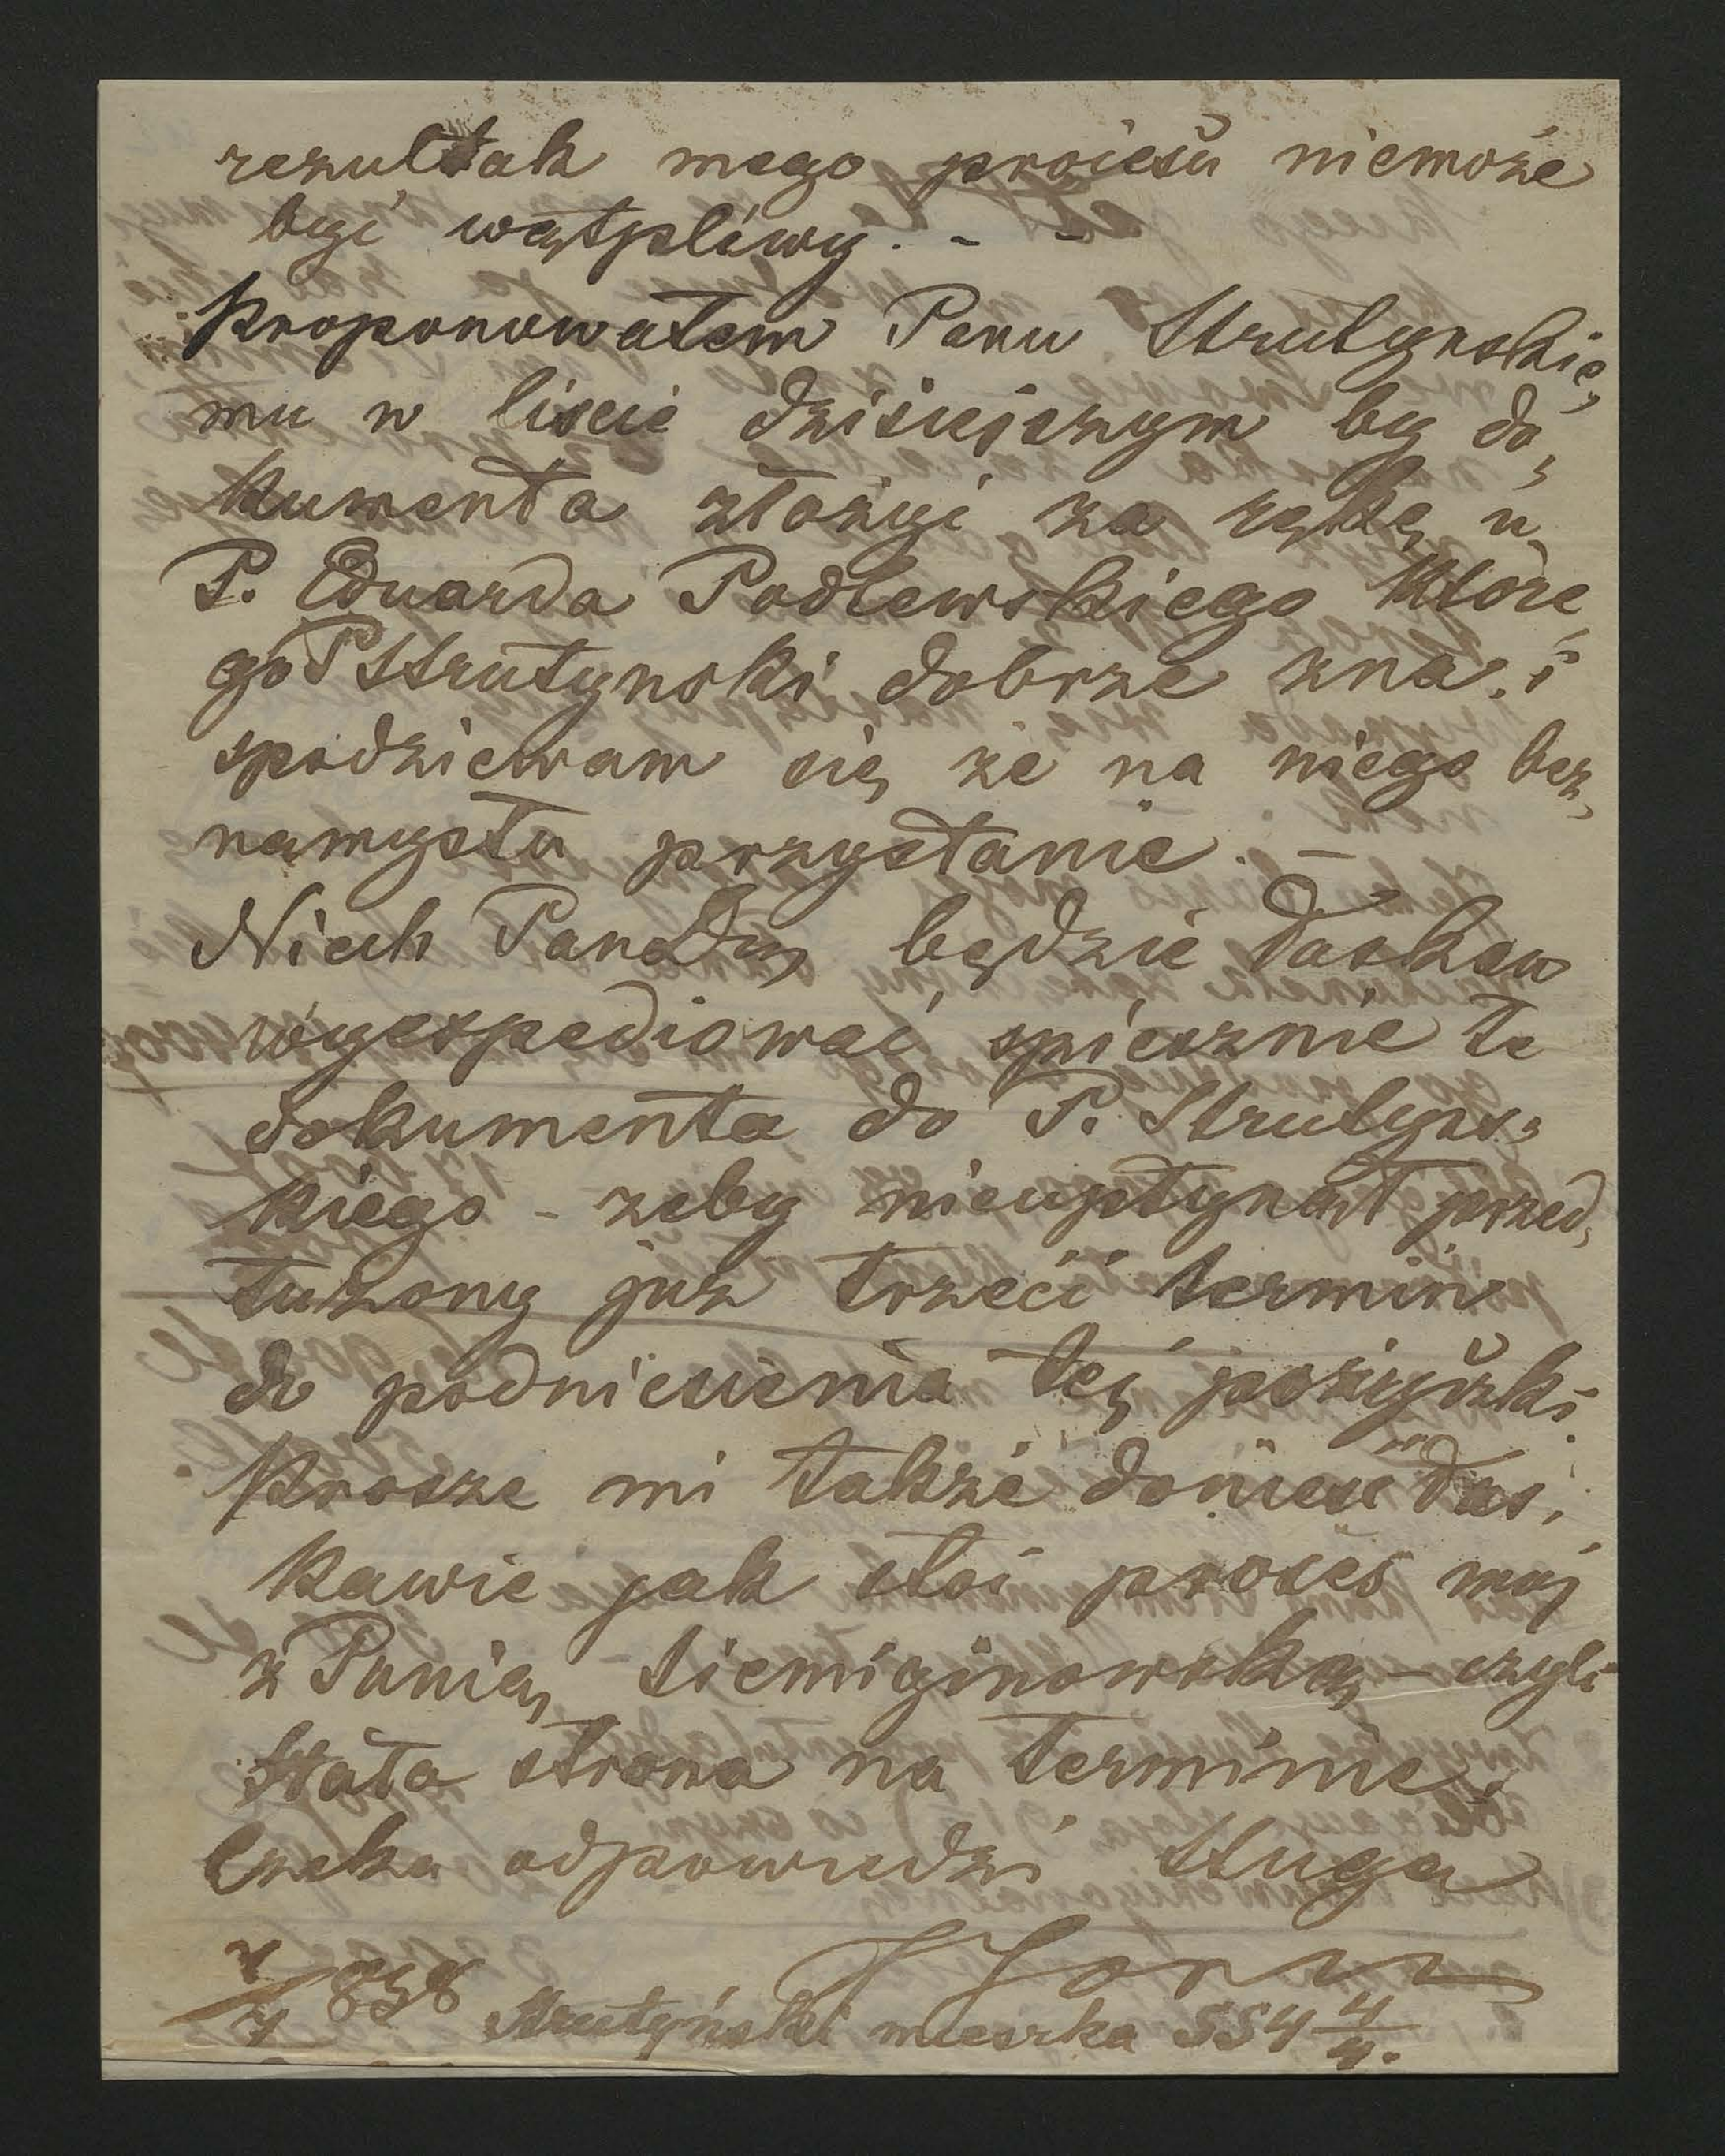 rezultat mego procesu niemoże
być wątpliwy. - -
Proponowałem Panu Strutynskie„
mu w liscie dzisiejszym by do„
kumenta złożyć za ręką u
P. Eduarda Podlewskiego które„
go P Strutynski dobrze zna. i
spodziewam się że na niego bez„
namysłu przystanie. -
Niech Pan będzie łaskaw
wyexpediować spiesznie te
dokumenta do P. Strutyns„
kiego - zeby nieupłynął przed„
łuzony juz trzeci termin
do podniesienia tej pozyczki.
Prosze mi także donieść łas„
kawie jak stoi proces moj
z Panią Siemiginowską - czyli
stała strona na terminie.
Czeka odpowiedzi Sługa
858 Strutyński mieszka 554 4/4.